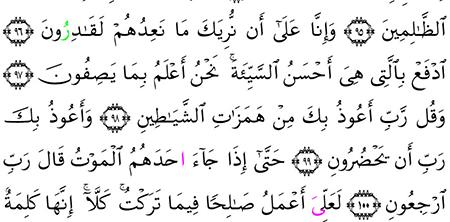 ٱلظَّٰلِمِينَ ٩٥ وَإِنَّا عَلَىٰٓ أَن نُّرِيَكَ مَا نَعِدُهُمْ لَقَٰدِرُونَ ٩٦
ٱدْفَعْ بِٱلَّتِى هِىَ أَحْسَنُ ٱلسَّيِّئَةَ ۚ نَحْنُ أَعْلَمُ بِمَا يَصِفُونَ ٩٧
وَقُل رَّبِّ أَعُوذُ بِكَ مِنْ هَمَزَٰتِ ٱلشَّيَٰطِينِ ٩٨ وَأَعُوذُ بِكَ
رَبِّ أَن يَحْضُرُونِ ٩٩ حَتَّىٰٓ إِذَا جَآءَ احَدَهُمُ ٱلْمَوْتُ قَالَ رَبِّ
ٱرْجِعُونِ ١٠٠ لَعَلِّىَ أَعْمَلُ صَٰلِحًا فِيمَا تَرَكْتُ ۚ كَلَّآ ۚ إِنَّهَا كَلِمَةٌ